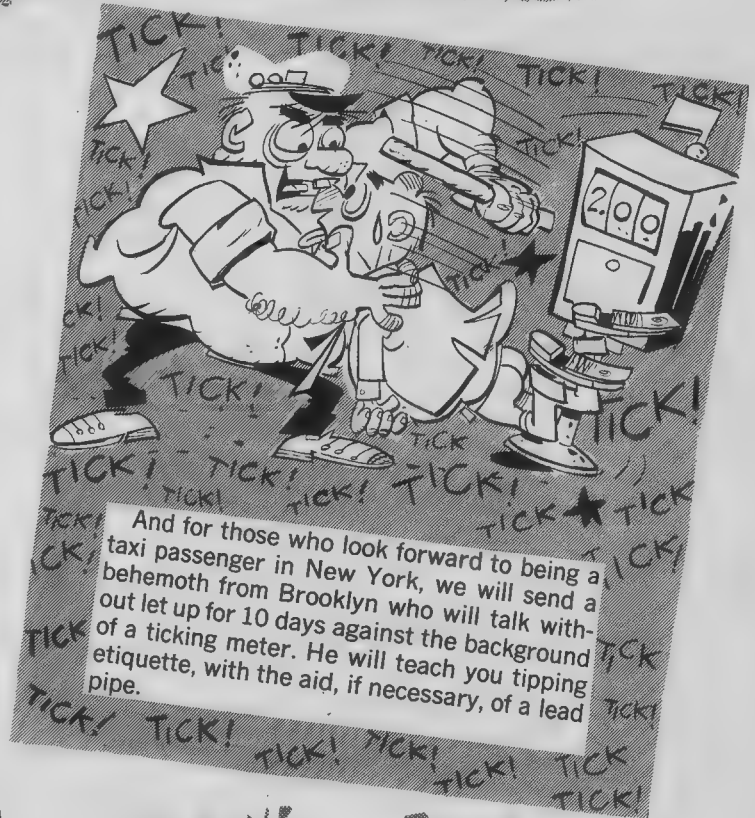 TICK!
TICK!
TICK!
TICK!
TICK!
TICK!
TICK!
TICK!
TICK!
TICK!
200
TICK!
CK!
TICK!
TICK!
TICK!
TICK
TICK!
TICK!
TICK!
TICK!
TICK!
TICK
TICK
TICK!
ICK!
ICK!
And for those who look forward to being a
taxi passenger in New York, we will send a
behemoth from Brooklyn who will talk with-
out let up for 10 days against the background
of a ticking meter. He will teach you tipping
etiquette, with the aid, if necessary, of a lead
pipe.
TICK
TICK
TICK!
TICK!
TICK!
TICK!
TICK!
TICK!
TICK
TICK!